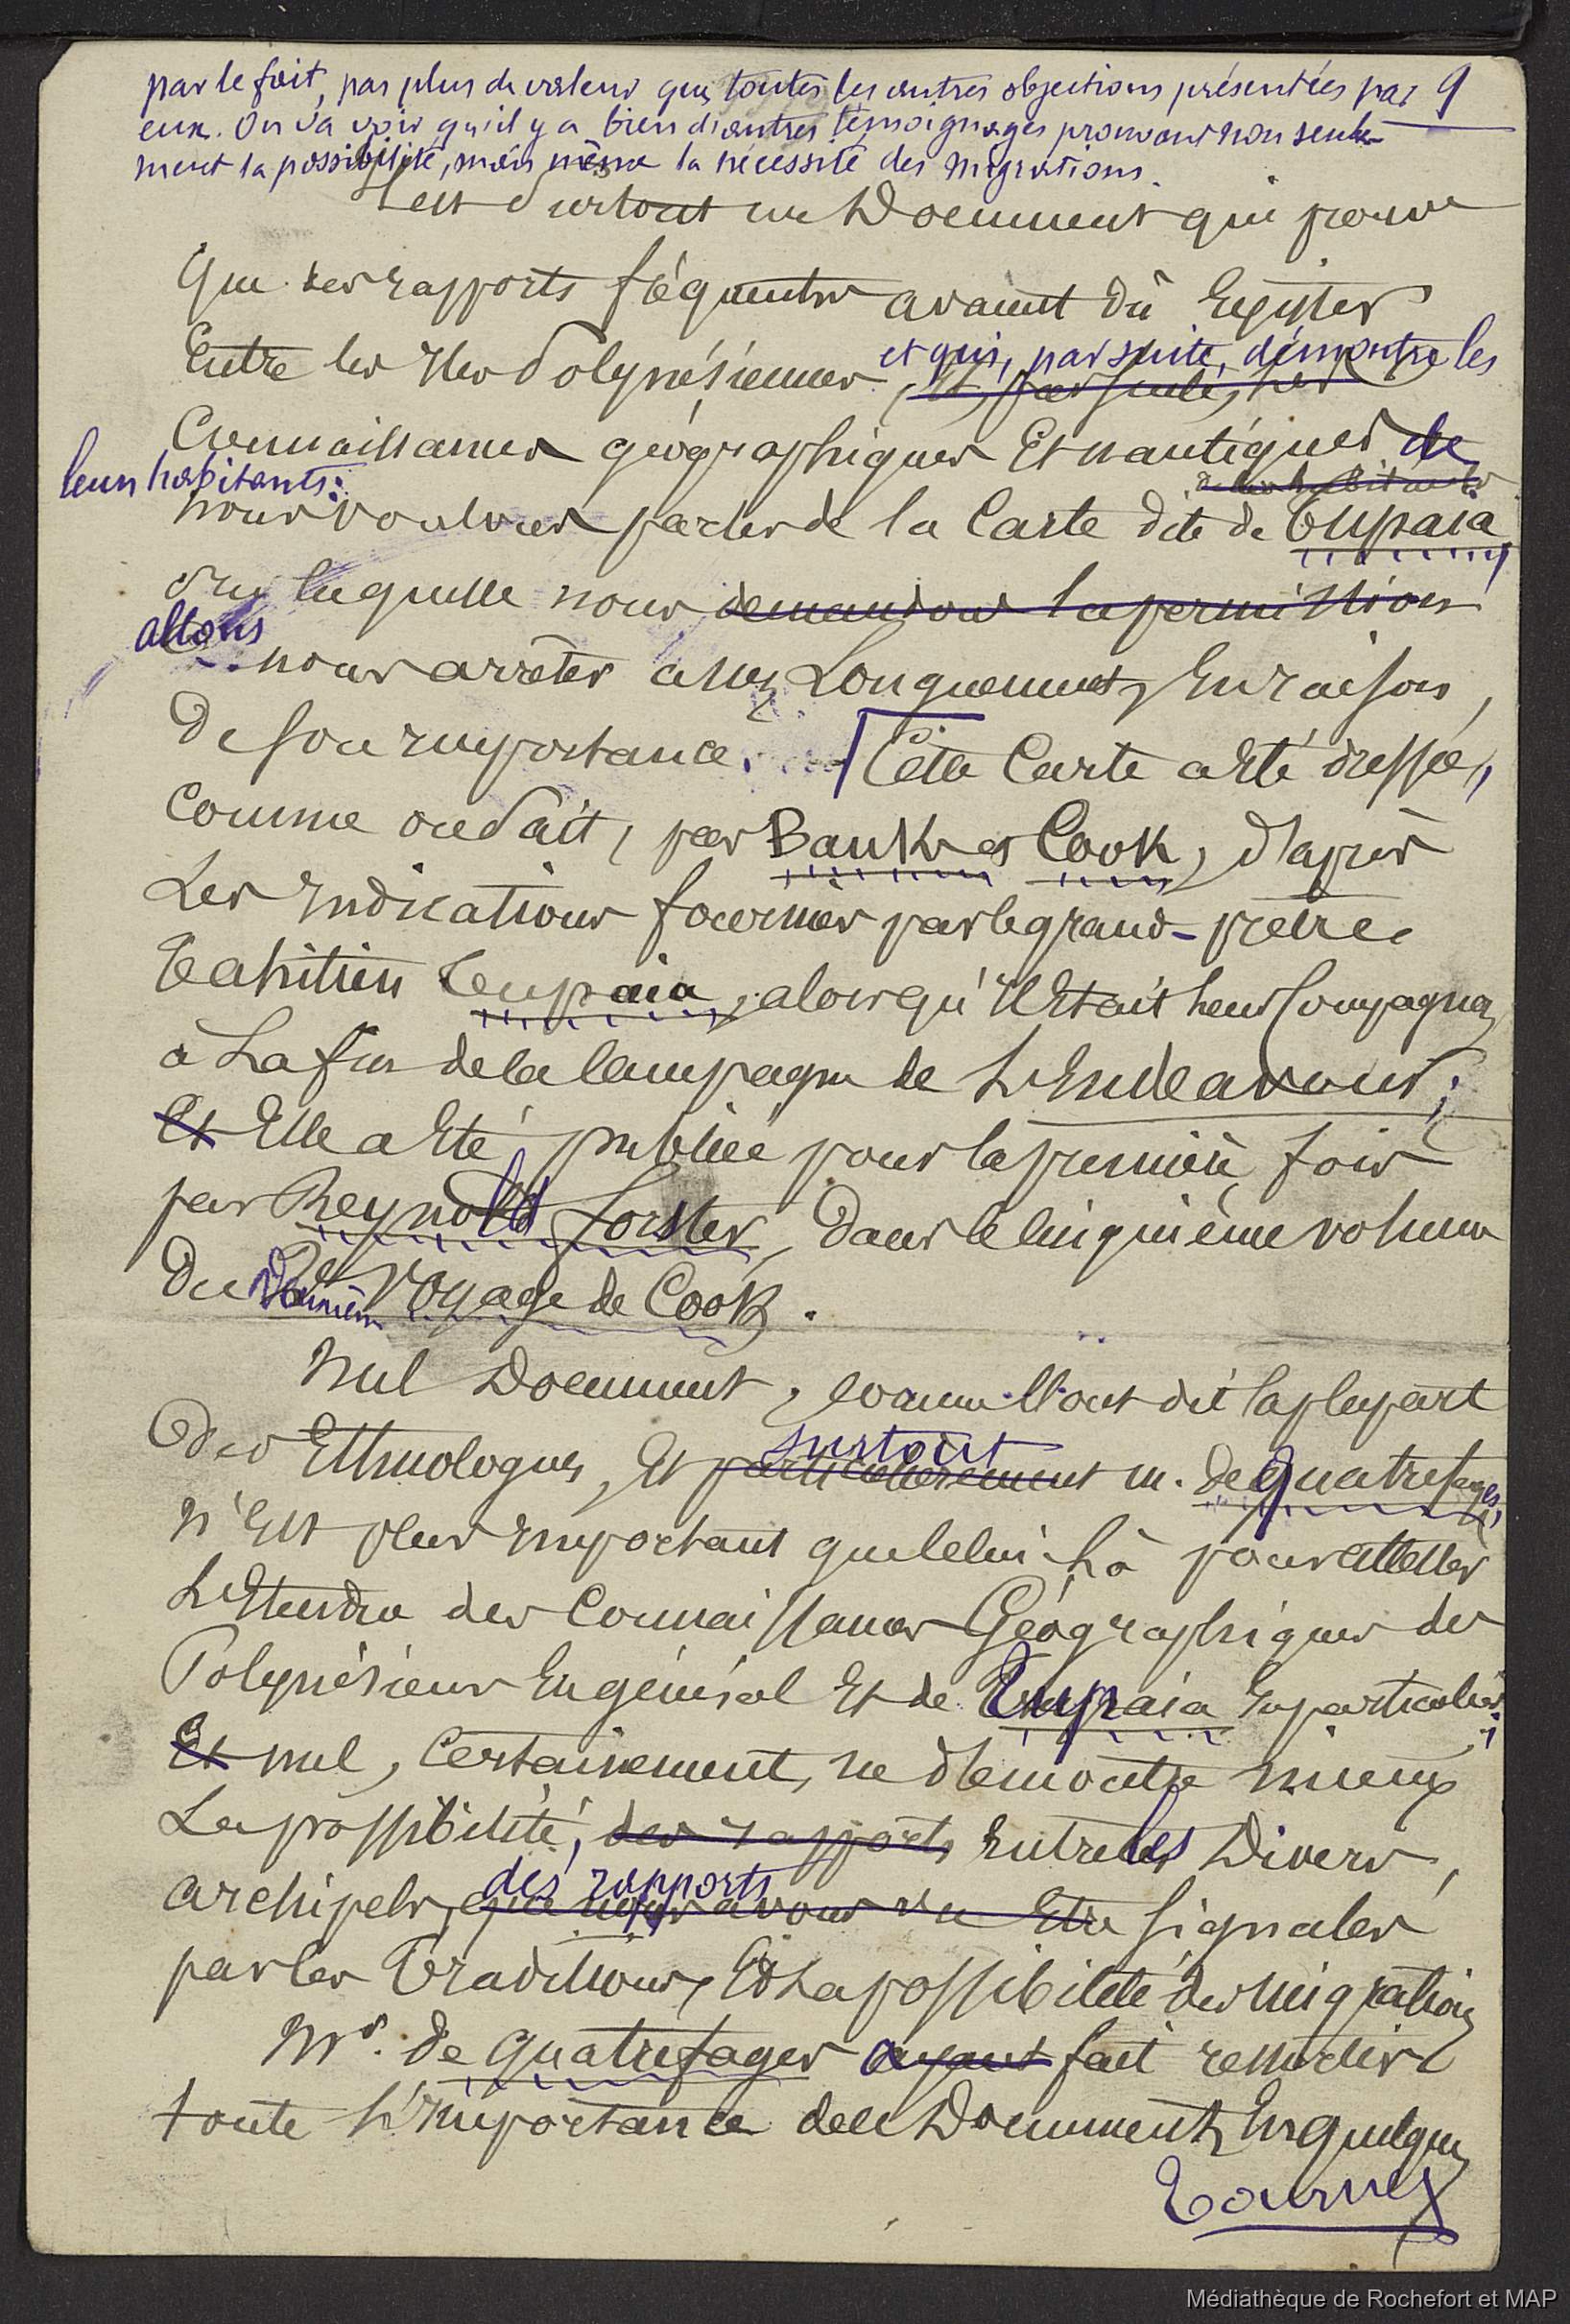 par le fait, pas plus de valeur que toutes les autres objections présentées par 9
eux. On va voir qu'il y a bien d'autres témoignages prouvant non seule-
ment la possibilité, mais même la nécessité des migrations.
Il est surtout un Document qui prouve
que des rapports fréquents avaient dû Exister
Entre les Iles Polynésiennes, et qui, par suite, démontre les
et, par suite, les
Connaissances géographiques Et nautiques de
leurs habitants:
de leurs habitants
nous voulons parler de la Carte dite de Tupaia,
sur laquelle nous demandons la permission
allons
nous arrêter assez Longuement, En raison,
De son importance. Cette Carte a été dressée,
comme on Sait, par Banks et Cook, d'après
Les Indications fournies par le grand-prêtre
Tahitien Tupaia, alors qu'Il Etait leur Compagnon
à La fin de la Campagne de L'Endeavour;
Et Elle a Eté publiée pour la première fois
par Reynold Forster, Dans le Cinquième volume
Du Dernier Voyage de Cook.
Nul Document, comme l'ont dit la plupart
Des Ethnologues, Et particulièrement surtout m. de Quatrefages,
N'Est plus Important que Celui-Là pour attester
L'Etendue des Connaissances Géographiques des
Polynésiens En général Et de Tupaia En particulier;
Et nul, Certainement, ne démontre mieux
La possibilité, des rapports Entre les Divers,
archipels, des rapports que nous avons vu Etre signalés
par les Traditions, Et La possibilité des Migrations
Mr. de Quatrefages ayant fait ressortir
toute L'Importance de ce Document, En quelques
Tournez
Médiathèque de Rochefort et MAP